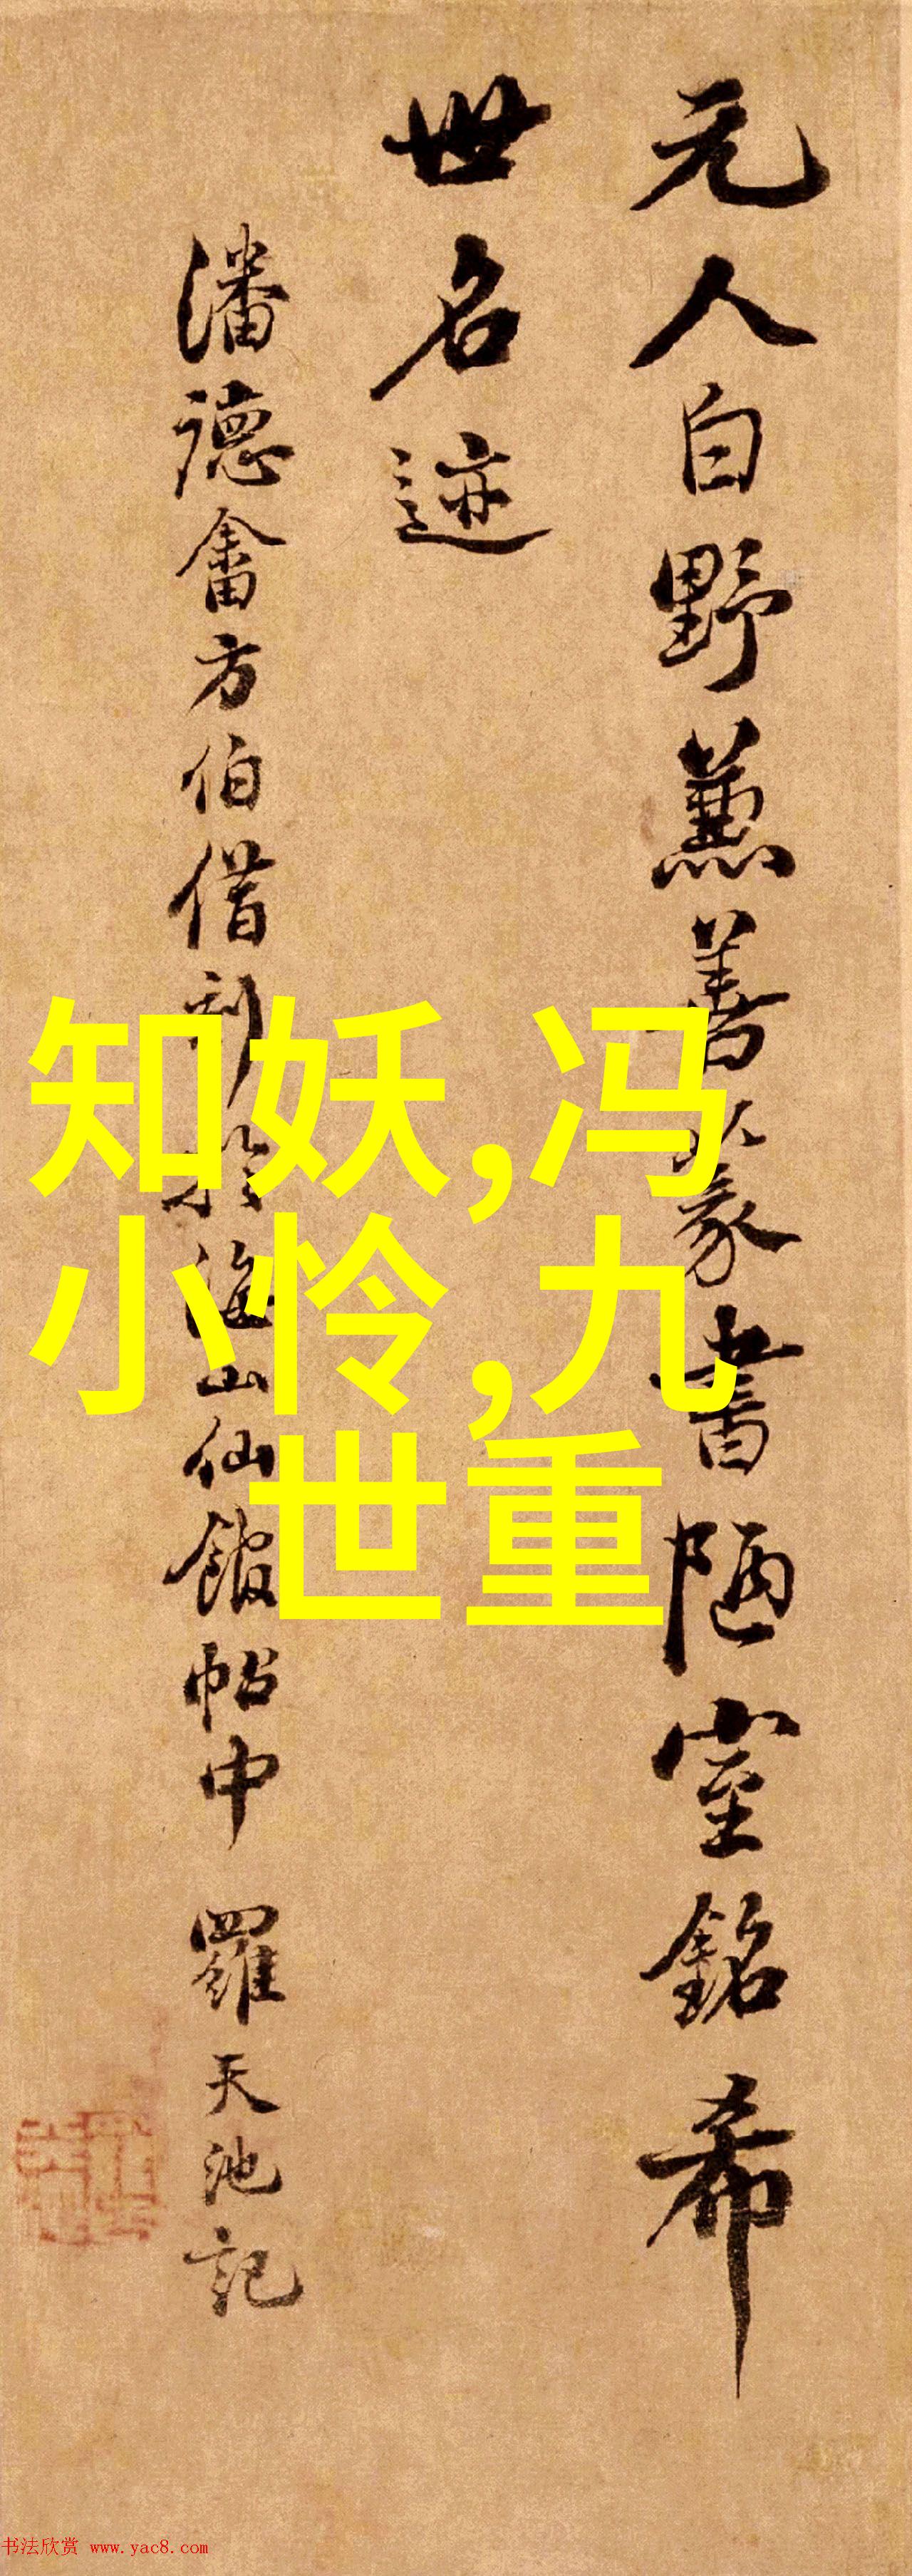 元人白野薫善篆書陋室銘希
世名迹
潘德畬方伯借刻於海山仙館帖中 羅天池記
知妖,冯
小怜,九
世重
书法欣赏 www.yac8.com